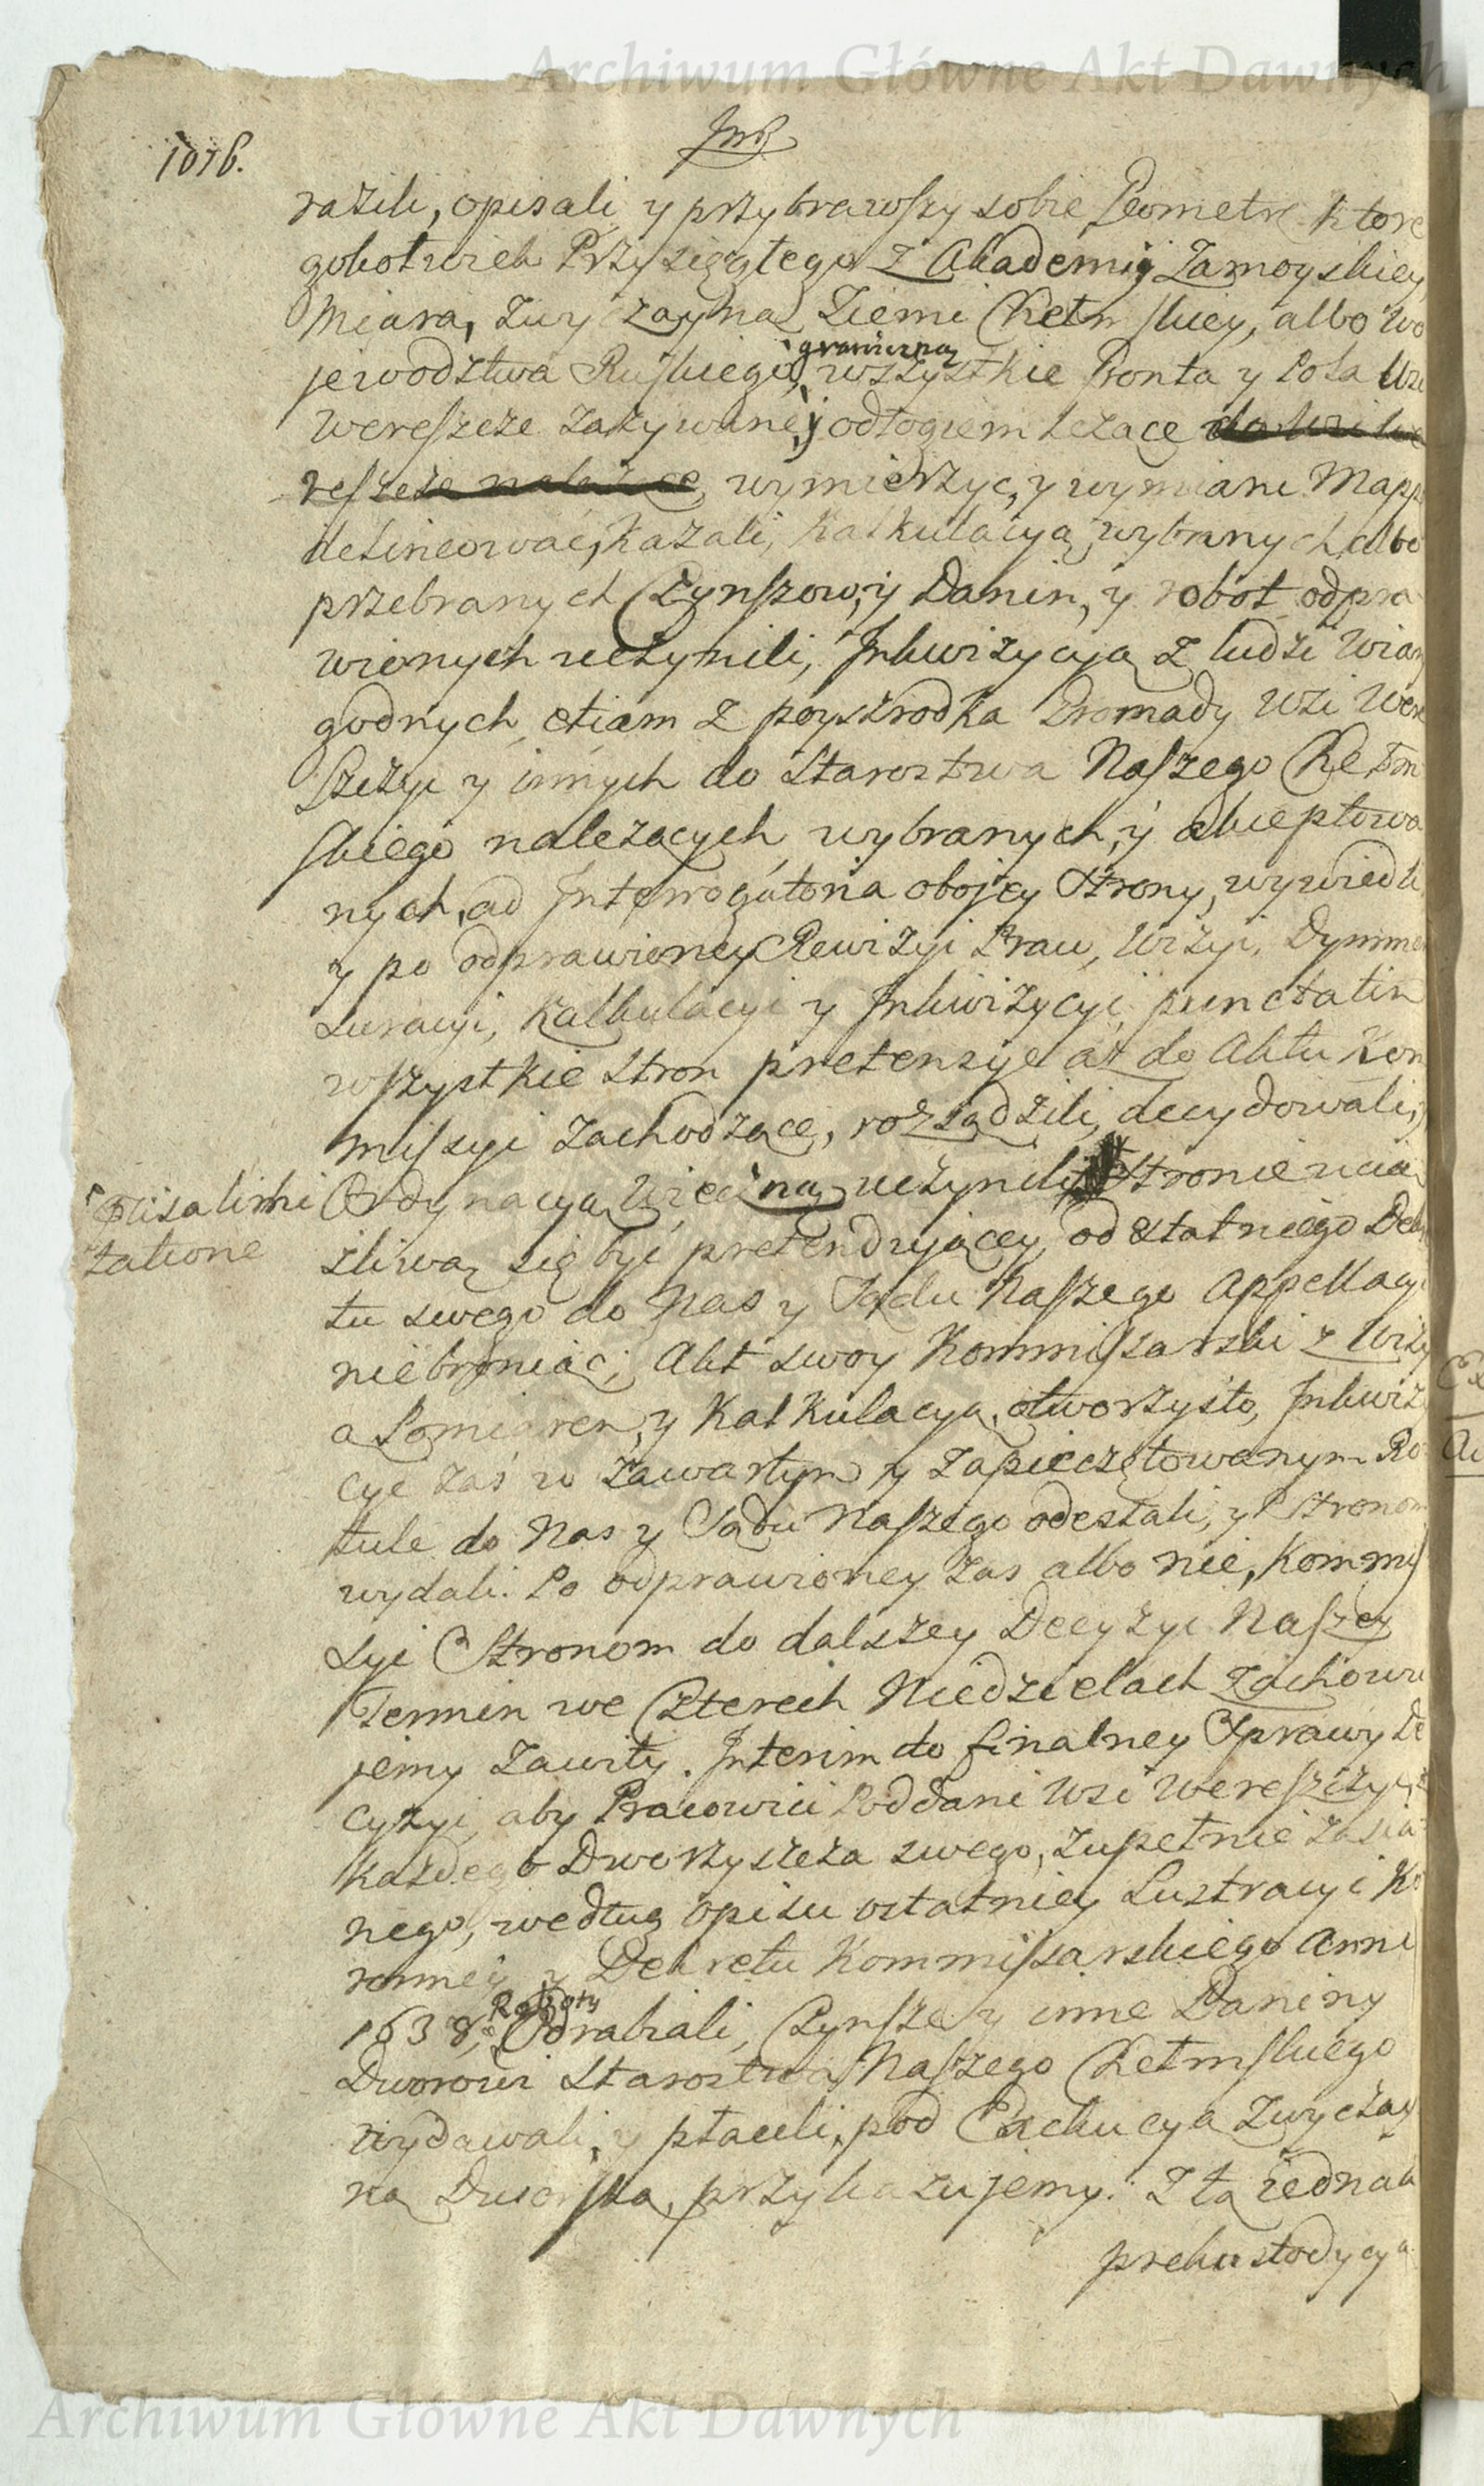 Archiwum Główne Akt Dawnych
1076.
razili, opisali y przybrawszy sobie Geometrę ktore
gokolwiek Przysięgłego z Akademij Zamoyskiey
Miarą, zwyczayną Ziemi Chełmskiey, albo Wo
jewodztwa Ruskiego, wszystkie Gronta y Pola
graniczną
Wereszcze zażywane, y odłogiem leżące do Wsi We
reszcze należące, wymierzyć, y wymiane Mapp
delineować, kazali, Kalkulacyą wybranych albo
przebranych Czynszow, y Danin, y robot odpra
wionych uczynili, Inkwizycyą z ludzi Wiar
godnych, etiam z poyszrodka Gromady Wsi Were
szczyc y innych do Starostwa Naszego Chełm
skiego należących, wybranych, y akceptowa
nych, ad Interrogatoria obojey Strony, wywiedli
y po odprawioney Rewizyi Praw, Wizyi, Dymmen
suracyi, Kalkulacyi y Inkwizycyi, punctatim
wszystkie Stron pretensye aż do Aktu Kom
missyi zachodzące, rozsądzili, decydowali, y
Ordynacyą Wieczną uczynili, Stronie ucią
żliwą się być pretendującey, od ostatniego Dekre
salimi
tatione
tu swego do Nas y Sądu Naszego Appellacyi
niebroniąc; Akt swoy Kommissarski z Wizyą
a Pomiarem, y Kalkulacyą, otworzysto, Inkwizy
cye zaś w zawartym y zapieczętowanym Ro
tule do Nas y Sądu Naszego odesłali, y Stronom
wydali. Po odprawioney zas albo nie, Kommis
syi Stronom do dalszey Decyzyi Naszey
Termin we Czterech Niedzielach zachowu
jemy zawity. Interim do finalney Sprawy De
cyzyi, aby Pracowici Poddani Wsi Wereszczyc, z
każdego Dworzyszcza swego, zupełnie zasia
nego, według opisu ostatniey Lustracyi Ko
ronney y Dekretu Kommissarskiego Anni
Roboty
1638, Odrabiali, Czynsze y inne Daniny
Dworowi Starostwa Naszego Chełmskiego
wydawali, y płacili, pod Exekucyą zwyczay
ną Dworską, przykazujemy. Z tą jednak
prekustodycyą
Archiwum Główne Akt Dawnych